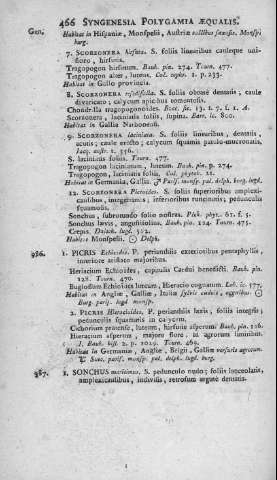 466 SYNGENESIA POLYGAMIA ÆQUALIS.
Gen. Habitat in Hispaniæ, Monspelii, Austriæ collibus saxosis. Monsp.
burg.
7. SCORZONERA hirsuta. S. foliis linearibus cauleque uni-
floro, hirsutis.
Tragopogon hirsutum. Bauh. pin. 274. Tourn. 477.
Tragopogon alter, luteus. Col. ecphr. 1. p. 233.
Habitat in Gallo provincia.
8. SCORZONERA resedifolia. S. foliis obtuse dentatis, caule
divaricato; calycum apicibus tomentosis.
Chondrilla tragopogonoides. Bocc. sic. 13. t. 7. f. A.
Scorzonera, laciniatis foliis, supina. Barr. ic. 800.
Habitat in Gallia Narbonensi.
9. SCORZONERA laciniata. S. foliis linearibus, dentatis,
acutis; caule erecto; calycum squamis patulo-mucronatis,
Jacq. austr. t. 356.
S. laciniatis foliis. Tourn. 477.
Tragopogon laciniatum, luteum. Bauh. pin. p. 274.
Tragopogon, laciniatis foliis. Col. phytob. 21.
Habitat in Germania, Gallia. ♂ Paris. monsp. pal. delph. burg. lugd.
12. SCORZONERA Picroides. S. foliis superioribus amplexi-
caulibus, integerrimis; inferioribus runcinatis; pedunculis
squamosis.
Sonchus, subrotundo folio nostras. Pluk. phyt. 61. f. 5.
Sonchus lævis, angustifolius. Bauh. pin. 124. Tourn. 475.
Crepis. Dalech. lugd. 562.
Habitat Monspelii. ☉ Delph.
986. 1. PICRIS Echioides. P. perianthiis exterioribus pentaphyllis,
interiore aristato majoribus.
Hieracium Echioides, capitulis Cardui benedicti. Bauh. pin.
128. Tourn. 470.
Buglossum Echioides luteum, Hieracio cognatum. Lob. ic. 577.
Habitat in Angliæ, Galliæ, Italiæ sylvis cæduis, aggeribus ☉
Burg. paris. lugd. monsp.
2. PICRIS Hieracioides. P. perianthiis laxis, foliis integris;
pedunculis squamatis in calycem.
Cichorium pratense, luteum, hirsutie asperum Bauh. pin. 126.
Hieracium asperum, majore flore, in agrorum liminibus.
J. Bauh. hist. 2. p. 1029. Tourn. 469.
Habitat in Germaniæ, Angliæ, Belgii, Galliæ versuris agrorum.
♃ Suec. paris. monsp. pal. delph. lugd. burg.
987. 1. SONCHUS maritimus. S. pedunculo nudo; foliis lanceolatis,
amplexicaulibus, indivisis, retrorsum argute dentatis.